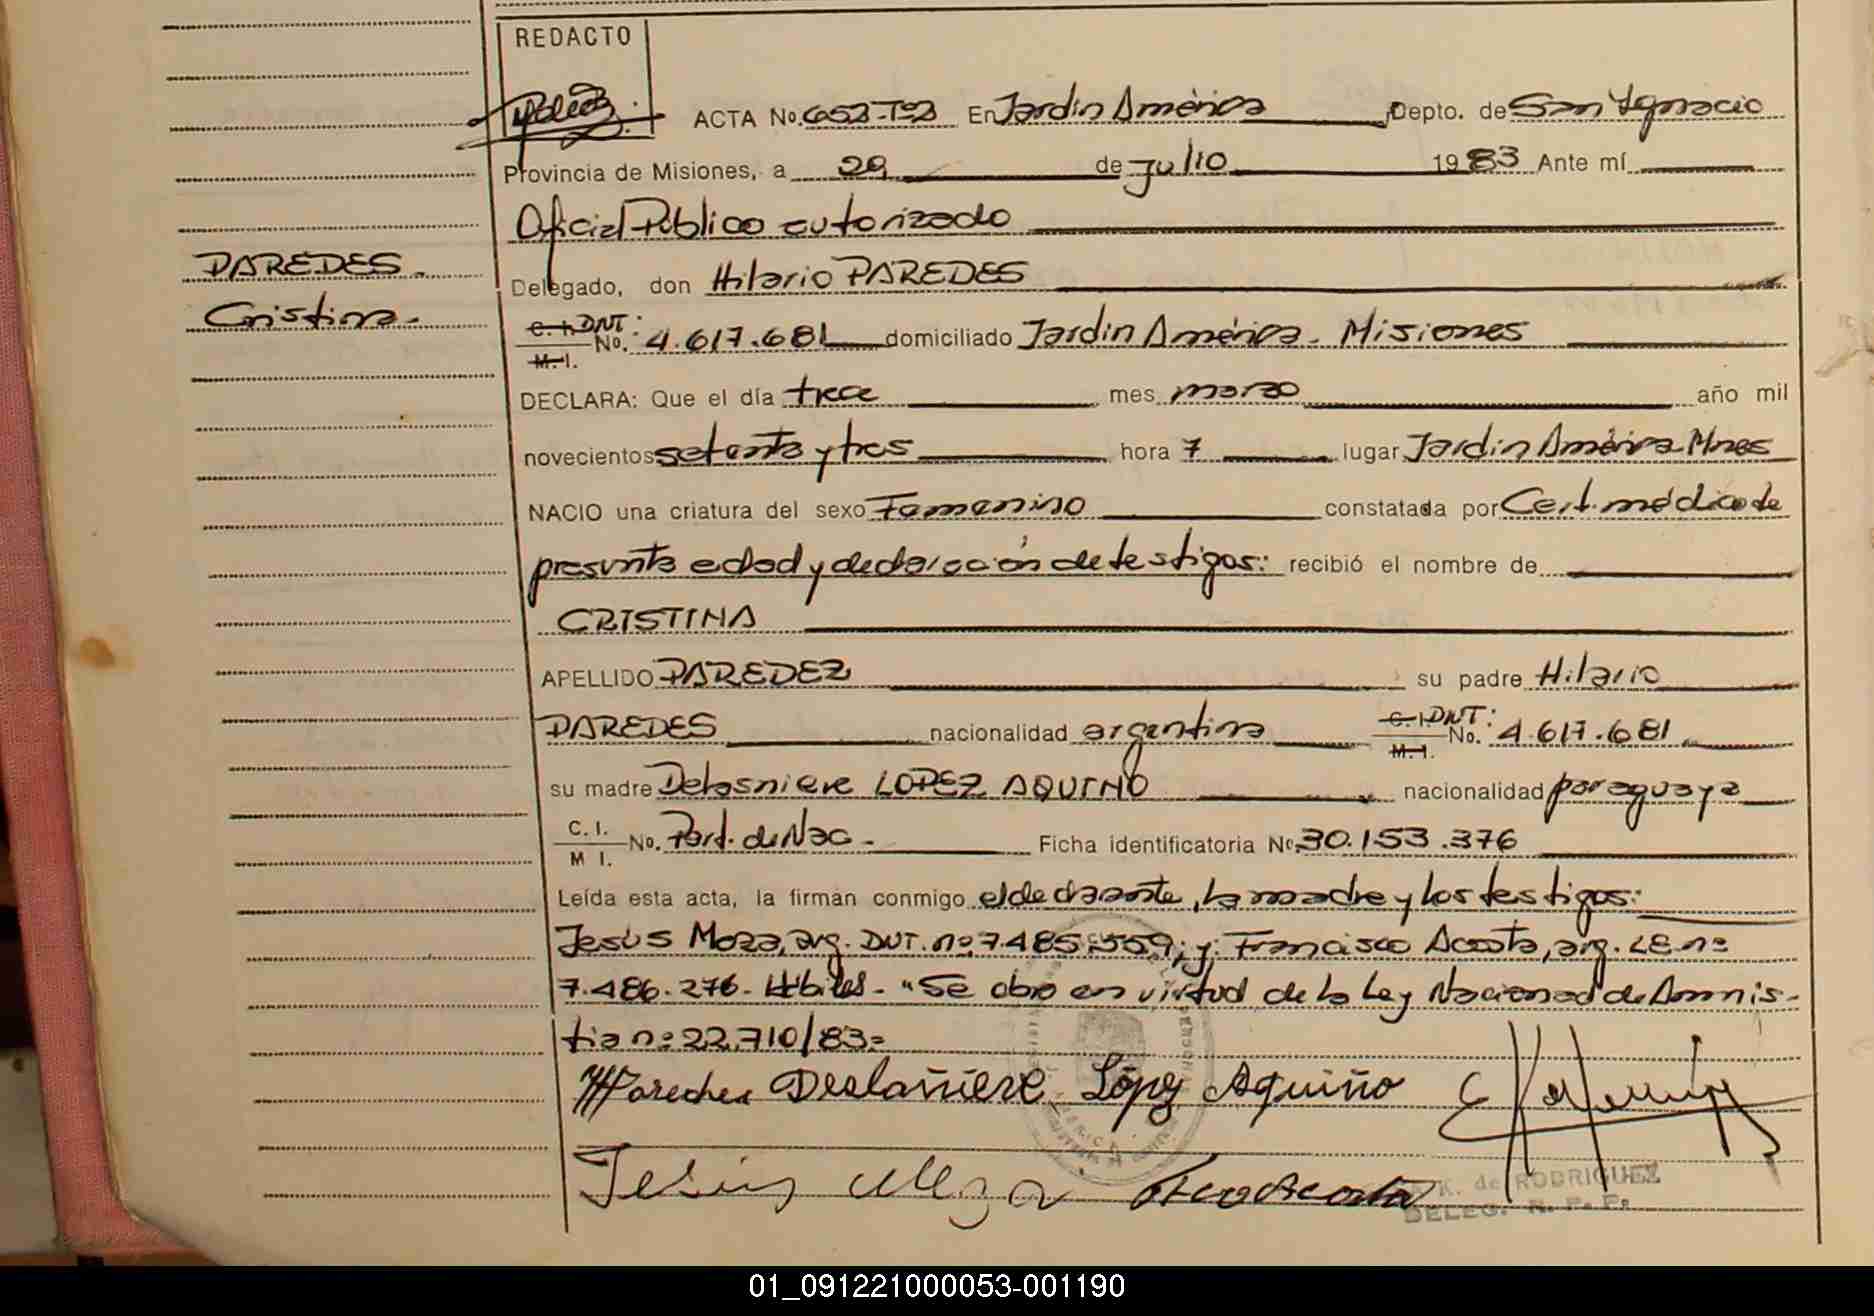 REDACTO
ACTA No. 653-T=3 En Jardín América Depto. de San Ignacio
Provincia de Misiones, a 29 de Julio 1983 Ante mí
Oficial Público autorizado
PAREDES.
Cristina.-
Delegado, don Hilario PAREDES
C. I. DNI: M. I. No. 4.617.681 domiciliado Jardín América. Misiones
DECLARA: Que el día trece mes marzo año mil
novecientos setenta y tres hora 7 lugar Jardín América Mnes
NACIO una criatura del sexo Femenino constatada por Cert. médico de
presunta edad y declaración de testigos: recibió el nombre de
CRISTINA
APELLIDO PAREDEZ su padre Hilario
PAREDES nacionalidad argentina C. I. DNI: M. I. No. 4.617.681
su madre Delasniere LOPEZ AQUINO nacionalidad paraguaya
C. I. M I. No. Part. de Nac.- Ficha identificatoria No 30.153.376
Leída esta acta, la firman conmigo el declarante, la madre y los testigos:
Jesús Meza, arg. DNI. nº 7.485.559; y Francisco Acosta, arg. LE nº
7.486.276- Hábiles- "Se abre en virtud de la Ley Nacional de Amnis-
tia nº 22.710/83=
HParedes Deslañiere López Aquiño
Jesus Meza Fco Acosta
K. de RODRIGUEZ
DELEG. R. P. P.
01_091221000053-001190